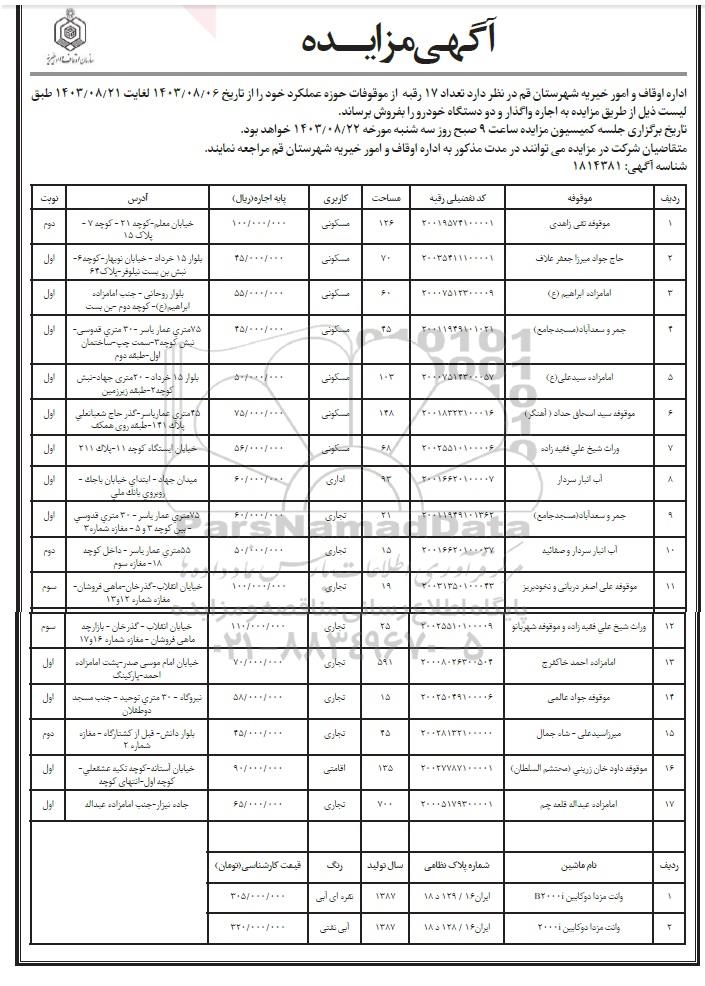 آگهی مزایده
سازمان اوقاف و امور خیریه
اداره اوقاف و امور خیریه شهرستان قم در نظر دارد تعداد ۱۷ رقبه از موقوفات حوزه عملکرد خود را از تاریخ ۱۴۰۳/۰۸/۰۶ لغایت ۱۴۰۳/۰۸/۲۱ طبق
لیست ذیل از طریق مزایده به اجاره واگذار و دو دستگاه خودرو را بفروش برساند.
تاریخ برگزاری جلسه کمیسیون مزایده ساعت ۹ صبح روز سه شنبه مورخه ۱۴۰۳/۰۸/۲۲ خواهد بود.
متقاضیان شرکت در مزایده می توانند در مدت مذکور به اداره اوقاف و امور خیریه شهرستان قم مراجعه نمایند.
شناسه آگهی: ۱۸۱۴۳۸۱
ردیف موقوفه کد تفصیلی رقبه مساحت کاربری پایه اجاره(ریال) آدرس نوبت
۱ موقوفه تقی زاهدی ۲۰۰۱۹۵۷۴۱۰۰۰۰۱ ۱۲۶ مسکونی ۱۰۰/۰۰۰/۰۰۰ خیابان معلم-کوچه ۲۱ - کوچه ۷ - دوم
پلاک ۱۵
۲ حاج جواد میرزا جعفر علاف ۲۰۰۳۵۴۱۱۱۰۰۰۰۱ ۷۰ مسکونی ۴۵/۰۰۰/۰۰۰ بلوار ۱۵ خرداد - خیابان نوبهار-کوچه۶- اول
نبش بن بست نیلوفر-پلاک۶۴
۳ امامزاده ابراهیم (ع) ۲۰۰۰۷۵۱۲۳۰۰۰۰۹ ۶۰ مسکونی ۵۵/۰۰۰/۰۰۰ بلوار روحانی - جنب امامزاده اول
ابراهیم(ع)- کوچه دوم -بن بست
۴ جمر و سعدآباد(مسجدجامع) ۲۰۰۱۱۹۴۹۱۰۱۰۲۱ ۴۵ مسکونی ۴۵/۰۰۰/۰۰۰ ۷۵متری عمار یاسر -۳۰ متری قدوسی- اول
نبش کوچه۳-سمت چپ-ساختمان
اول-طبقه دوم
۵ امامزاده سیدعلی(ع) ۲۰۰۰۷۵۱۴۳۰۰۰۵۷ ۱۰۳ مسکونی ۵۰/۰۰۰/۰۰۰ بلوار ۱۵ خرداد - ۲۰متری جهاد-نبش اول
کوچه۲-طبقه زیرزمین
۶ موقوفه سید اسحاق حداد ( آهنگر) ۲۰۰۱۸۳۲۳۱۰۰۰۱۶ ۱۴۸ مسکونی ۷۵/۰۰۰/۰۰۰ ۴۵متری عماریاسر-گذر حاج شعبانعلی اول
پلاک ۱۴۱-طبقه روی همکف
۷ وراث شیخ علي فقیه زاده ۲۰۰۲۵۵۱۰۱۰۰۰۰۶ ۶۸ مسکونی ۵۶/۰۰۰/۰۰۰ خیابان ایستگاه کوچه ۱۱-پلاك ۲۱۱ اول
۸ آب انبار سردار ۲۰۰۱۶۶۲۰۱۰۰۰۰۷ ۹۳ اداری ۶۰/۰۰۰/۰۰۰ میدان جهاد - ابتداي خیابان باجك - اول
روبروي بانك ملي
۹ جمر و سعدآباد(مسجدجامع) ۲۰۰۱۱۹۴۹۱۰۱۳۶۲ ۲۱ تجاری ۶۰/۰۰۰/۰۰۰ ۷۵متري عمار یاسر - ۳۰ متري قدوسي اول
- بین کوچه ۳ و ۵ - مغازه شماره۳
۱۰ آب انبار سردار و صفائیه ۲۰۰۱۶۶۲۰۱۰۰۰۳۷ ۱۵ تجاری ۵۰/۰۰۰/۰۰۰ ۵۵متري عمار یاسر - داخل کوچه دوم
۱۸- مغازه سوم
۱۱ موقوفه علی اصغر دربانی و نخودبریز ۲۰۰۳۱۳۵۰۱۰۰۰۴۳ ۱۹ تجاری ۱۰۰/۰۰۰/۰۰۰ خیابان انقلاب-گذرخان-ماهی فروشان- سوم
مغازه شماره ۱۲و۱۳
۱۲ وراث شیخ علي فقیه زاده و موقوفه شهربانو ۲۰۰۲۵۵۱۰۱۰۰۰۰۹ ۲۵ تجاری ۱۱۰/۰۰۰/۰۰۰ خیابان انقلاب - گذرخان - بازارچه سوم
ماهی فروشان - مغازه شماره ۱۶و۱۷
۱۳ امامزاده احمد خاکفرج ۲۰۰۰۸۰۲۶۳۰۰۵۰۴ ۵۹۱ تجاری ۷۰/۰۰۰/۰۰۰ خیابان امام موسی صدر-پشت امامزاده اول
احمد-پارکینگ
۱۴ موقوفه جواد عالمی ۲۰۰۲۵۰۴۹۱۰۰۰۰۶ ۱۵ تجاری ۵۸/۰۰۰/۰۰۰ نیروگاه - ۳۰ متري توحید - جنب مسجد اول
دوطفلان
۱۵ میرزاسیدعلی - شاه جمال ۲۰۰۲۸۱۳۲۱۰۰۰۰۰ ۴۵ تجاری ۴۵/۰۰۰/۰۰۰ بلوار دانش- قبل از کشتارگاه - مغازه دوم
شماره ۲
۱۶ موقوفه داود خان زریني (محتشم السلطان) ۲۰۰۲۷۷۸۷۱۰۰۰۰۱ ۱۳۵ اقامتی ۹۰/۰۰۰/۰۰۰ خیابان آستانه-کوچه تکیه عشقعلی- اول
کوچه اول-انتهای کوچه
۱۷ امامزاده عبداله قلعه چم ۲۰۰۰۵۱۷۹۳۰۰۰۰۱ ۷۰۰ تجاری ۶۵/۰۰۰/۰۰۰ جاده نیزار-جنب امامزاده عبداله اول
ردیف نام ماشین شماره پلاک نظامی سال تولید رنگ قیمت کارشناسی(تومان)
۱ وانت مزدا دوکابین B۲۰۰۰i ایران۱۶ / ۱۲۹ د ۱۸ ۱۳۸۷ نقره ای آبی ۳۰۵/۰۰۰/۰۰۰
۲ وانت مزدا دوکابین ۲۰۰۰i ایران۱۶ / ۱۲۸ د ۱۸ ۱۳۸۷ آبی نفتی ۳۲۰/۰۰۰/۰۰۰
ParsNamadData
مرکز فرآوری اطلاعات پارس نماد داده ها
پایگاه اطلاع رسانی مناقصه و مزایده
۰۲۱-۸۸۳۴۹۶۷۰-۵